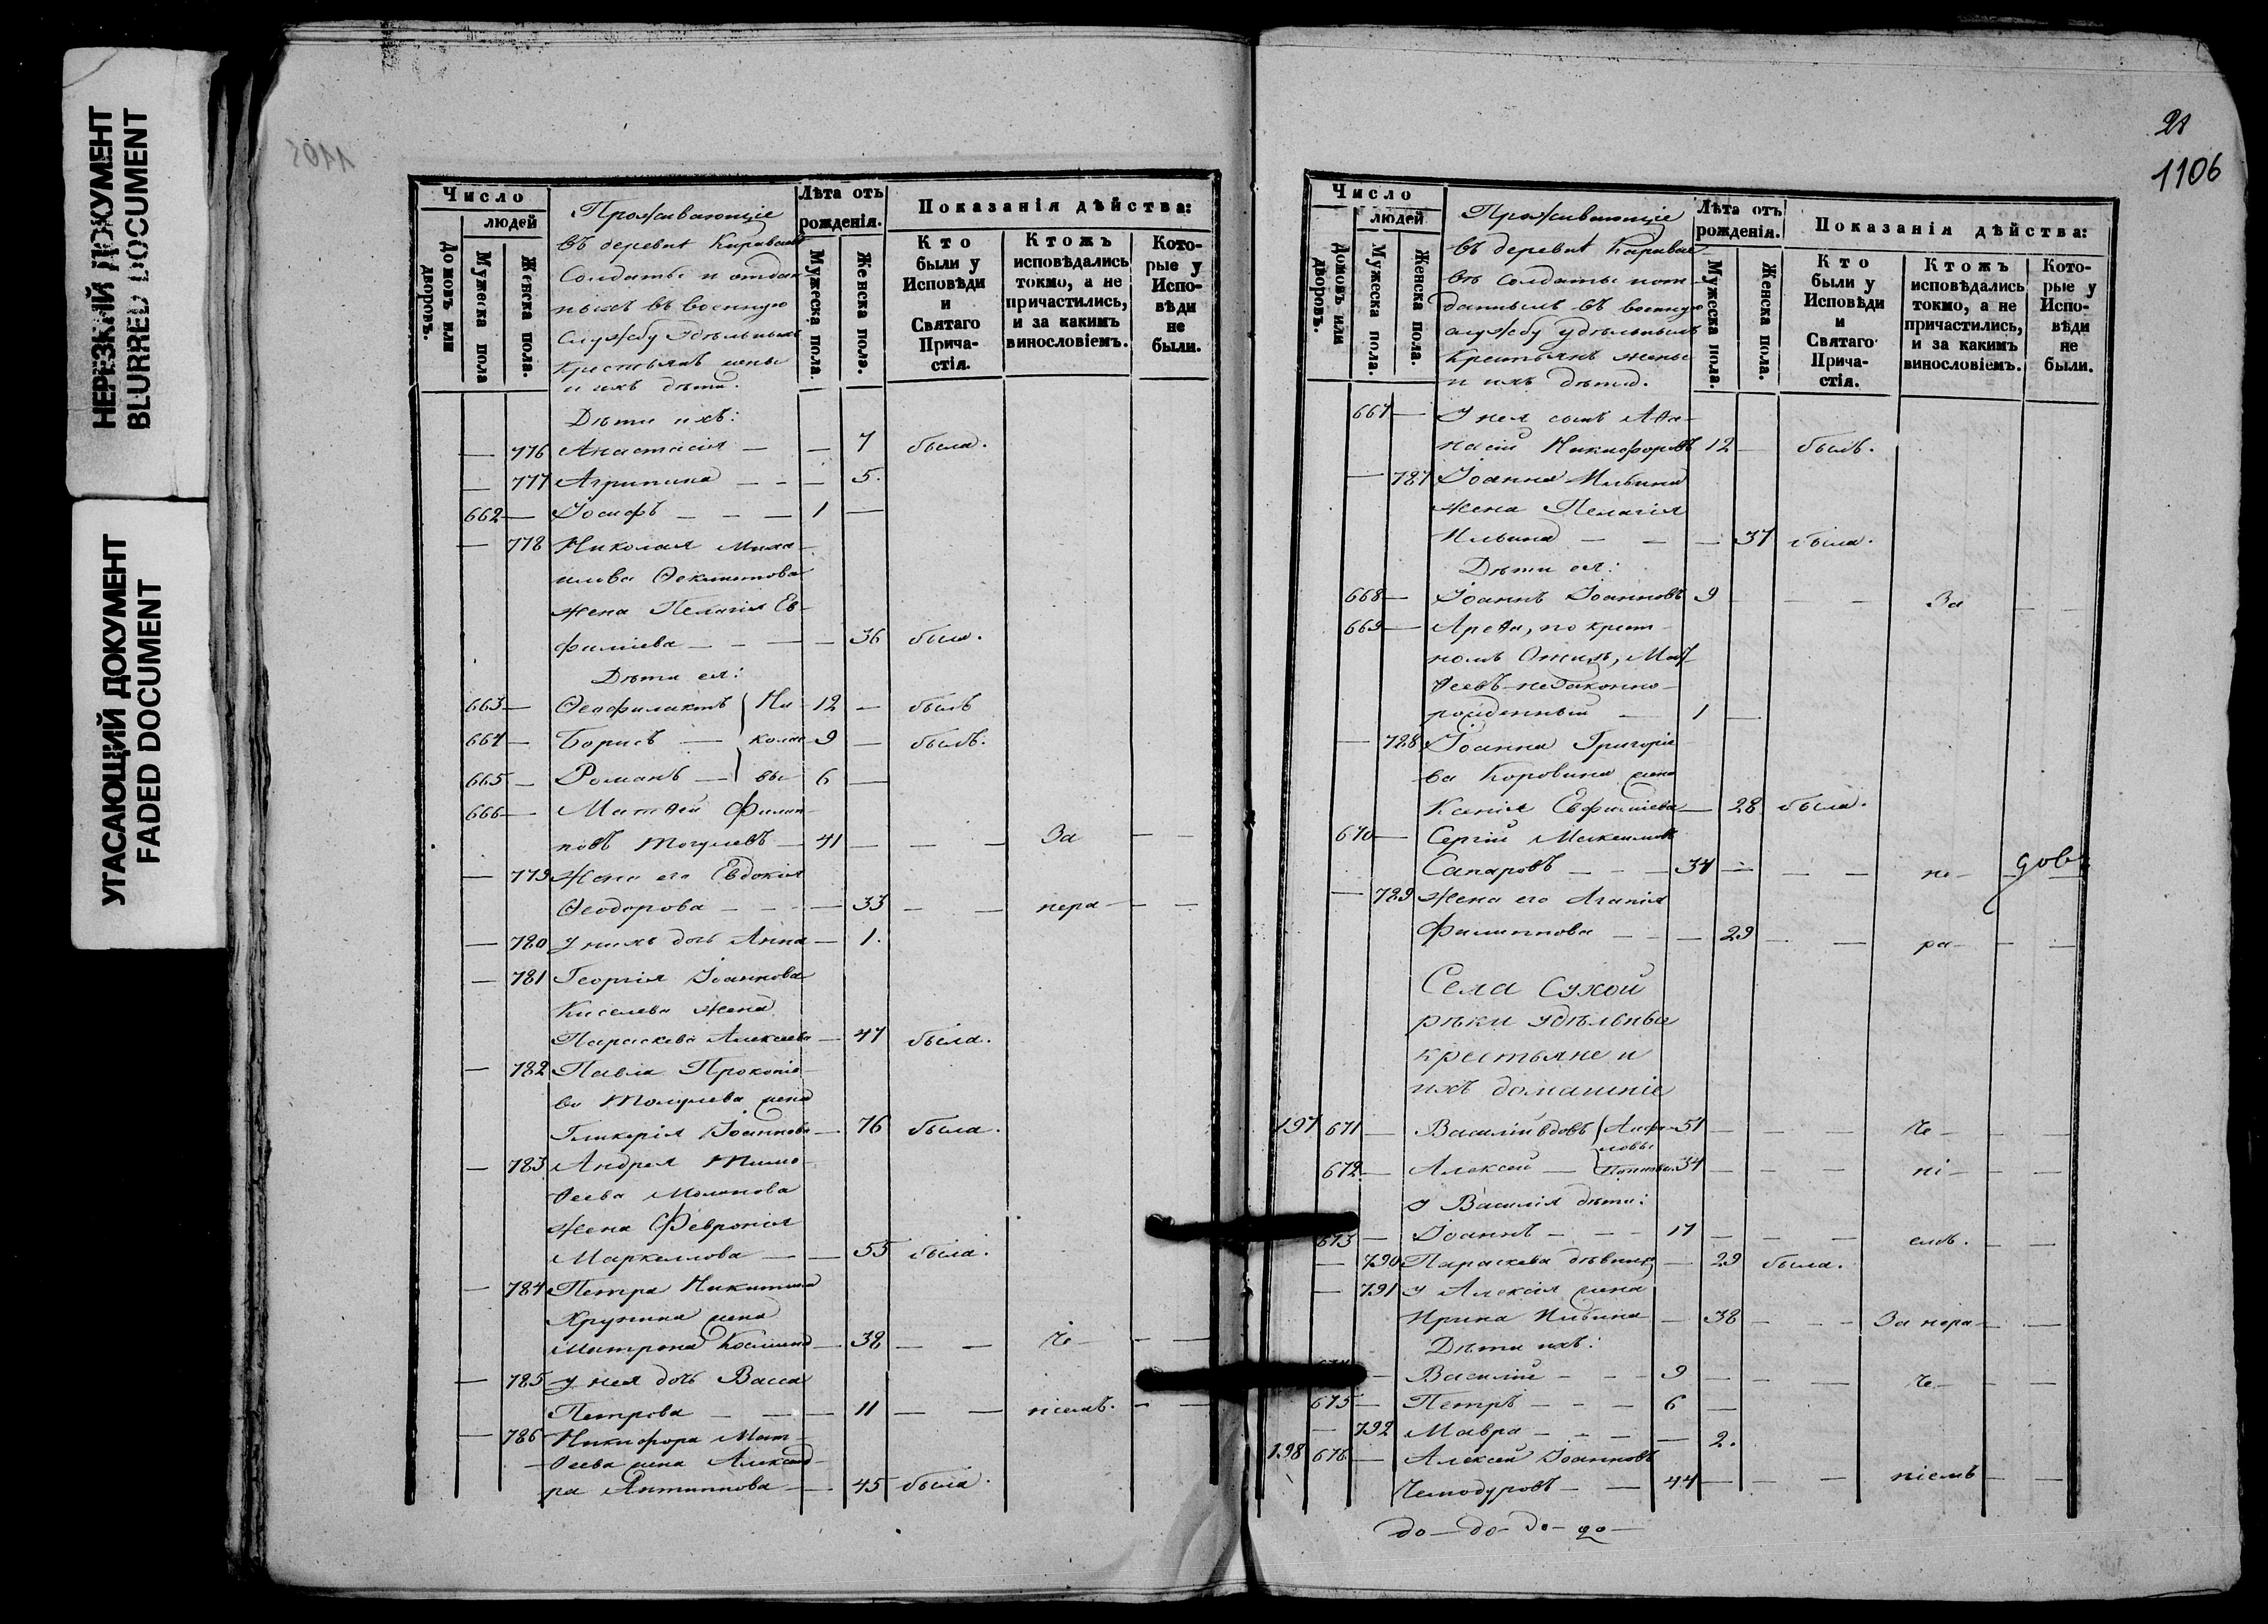 НЕРЕЗКИЙ ДОКУМЕНТ
BLURRED DOCUMENT
УГАСАЮЩИЙ ДОКУМЕНТ
FADED DOCUMENT
Число
людей
Домовъ или дворовъ.
Мужеска пола
Женска пола.
Проживающіе
въ деревнѣ
Солдатъ и отдан-
ныхъ въ военную
Службу Удѣльныхъ
Крестьянъ жены
и ихъ дѣти.
Лѣта отъ
рожденія.
Мужеска пола.
Женска пола.
Показанія дѣйства:
Кто
были у
Исповѣди
и
Святаго
Прича-
стія.
Ктожъ
исповѣдались
токмо, а не
причастились,
и за какимъ
винословіемъ.
Кото-
рые у
Испо-
вѣди
не
были.
Дѣти ихъ:
— 776 Анастасія — — 7 была.
— 777 Агрипина — — — 5.
662 — Іосифъ — — — 1 —
— 778 Николая Миха-
илова
жена Пелагія Ев-
фиміева — — — 36 была.
Дѣти ея:
663 — Ѳеофилактъ Ни- 12 — былъ
664 — Борисъ — колае- 9 — былъ.
665 — Романъ — вы 6 —
666 — Матѳей Филип-
повъ — 41 — — — За — —
— 779 Жена его Евдокія
Ѳеодорова — — — 33 — — нера — —
— 780 у нихъ дочь Анна — 1.
— 781 Георгія Іоаннова
Киселева жена
Параскева Алексеева — 47 была.
— 782 Павла Прокопіе-
ва жена
Гликерія Іоаннова — 76 была.
— 783 Андрея Тимо-
ѳеева
Жена Февронія
Маркеллова — — 55 была.
— 784 Петра Никитина
жена
Матрона Космина — 38 — — че — —
— 785 у нея дочь Васса
Петрова — — — 11 — — ніемъ. — —
— 786 Никифора Мат-
ѳеева жена Александ-
ра Антиппова — — 45 была
21
1106
Число
людей
Домовъ или дворовъ.
Мужеска пола.
Женска пола.
Проживающіе
въ деревнѣ
въ Солдаты
въ военную
службу удѣльныхъ
Крестьянъ жены
и ихъ дѣти.
Лѣта отъ
рожденія.
Мужеска пола.
Женска пола.
Показанія дѣйства:
Кто
были у
Исповѣди
и
Святаго
Прича-
стія.
Ктожъ
исповѣдались
токмо, а не
причастились,
и за какимъ
винословіемъ.
Кото-
рые у
Испо-
вѣди
не
были.
667 — У нея сынъ Аѳа-
насій Никифоровъ 12 — былъ.
— 787 Іоанна Ильина
жена Пелагія
Ильина — — — 37 была.
Дѣти ея:
668 — Іоаннъ Іоанновъ 9 — — — За — —
669 — Ареѳа, по крест-
номъ Отцѣ, Мат-
ѳеевъ незаконно-
рожденный — 1 —
— 788 Іоанна Григоріе-
ва Коровина жена
Ксенія Евфиміева — 28 была.
670 — Сергій Максимовъ
Сапаровъ — — — 34 — — — не —
— 789 Жена его Агапія
Филиппова — — — 29 — — ра — —
Села Сухой
рѣки удѣльные
крестьяне и
ихъ домашніе
197 671 — Василій вдовъ 51 — — — че — —
672 — Алексей — 34 — — — ні — —
у Василія дѣти:
673 — Іоаннъ — — — 17 — — емъ. — —
— 790 Параскева дѣвица — 29 была.
— 791 у Алексія жена
Ирина Ильина — 38 — — — За нера — —
Дѣти ихъ:
— Василій — — — 9 — — — че — —
675 — Петръ — — — 6 —
— 792 Мавра — — — — 2.
198 676 — Алексей Іоанновъ
Чемодуровъ — — 44 — — — ніемъ — —
до — до — до — до —